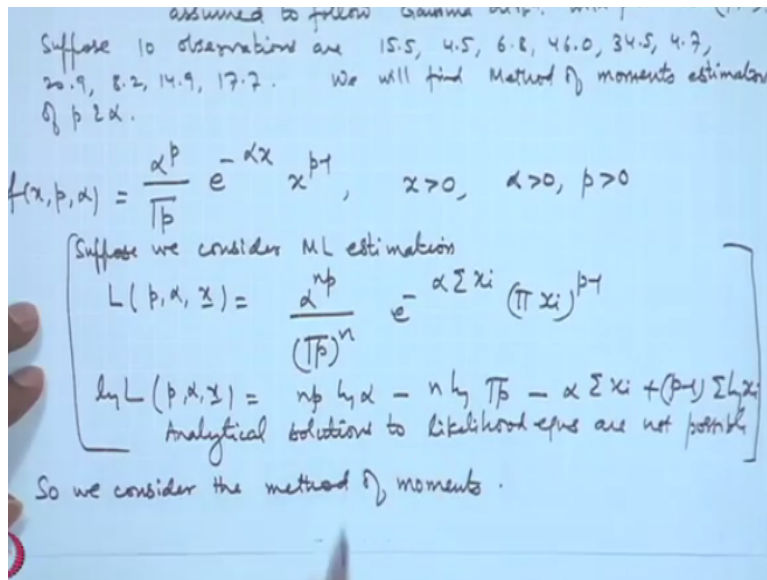 assumed to follow Gamma
Suppose 10 observations are 15.5, 4.5, 6.8, 46.0, 34.5, 4.7,
20.9, 8.2, 14.9, 17.7. We will find Method of moments estimators
of p & α.
f(x, p, α) = α^p / Γp e^{-αx} x^{p-1}, x>0, α>0, p>0
Suppose we consider ML estimation
L(p, α, x) = α^{np} / (Γp)^n e^{-α Σxi} (π xi)^{p-1}
log L(p, α, x) = np log α - n log Γp - α Σxi + (p-1) Σ log xi
Analytical solutions to likelihood eqns are not possible
So we consider the method of moments.